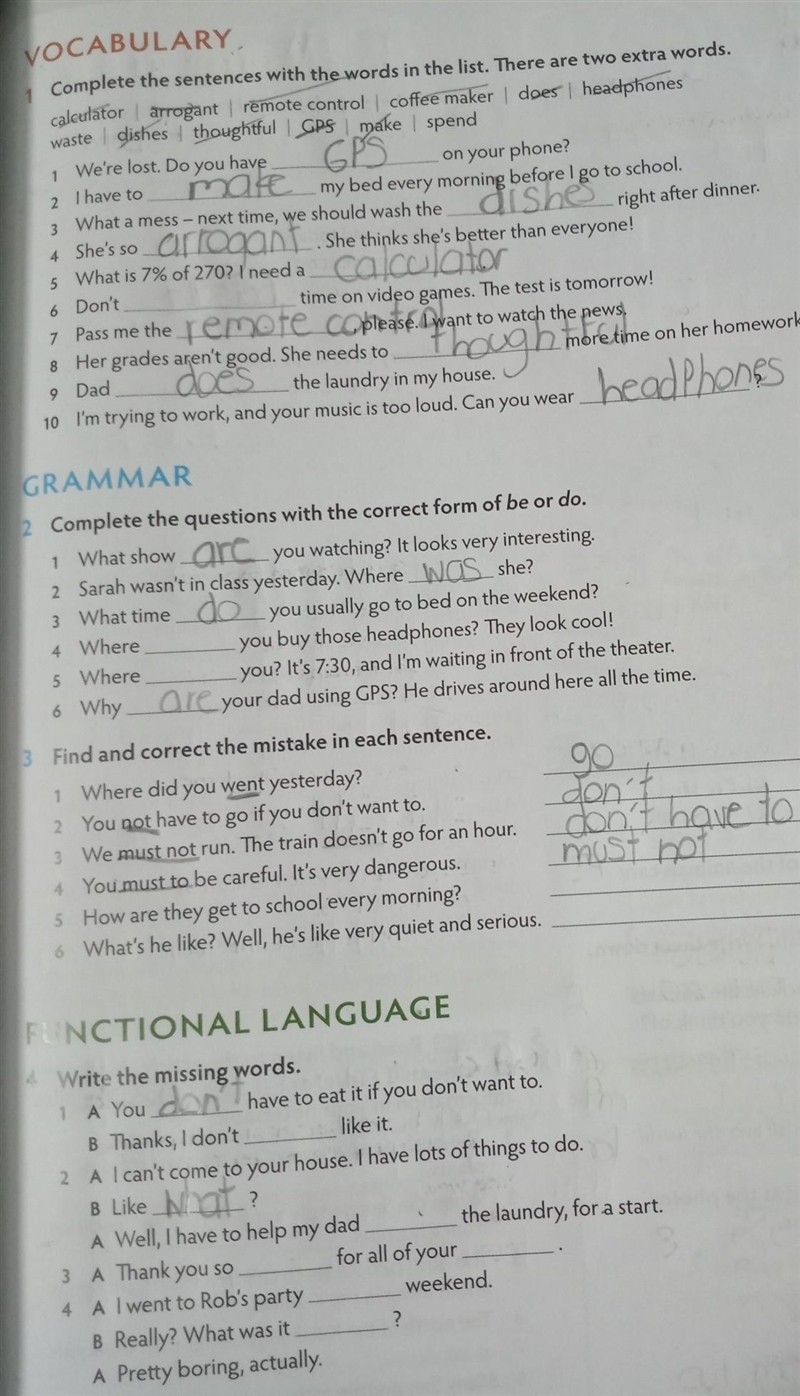 VOCABULARY
1 Complete the sentences with the words in the list. There are two extra words.
calculator | arrogant | remote control | coffee maker | does | headphones
waste | dishes | thoughtful | GPS | make | spend
1 We're lost. Do you have GPS on your phone?
2 I have to make my bed every morning before I go to school.
3 What a mess – next time, we should wash the dishes right after dinner.
4 She's so arrogant. She thinks she's better than everyone!
5 What is 7% of 270? I need a calculator.
6 Don't ____ time on video games. The test is tomorrow!
7 Pass me the remote control, please. I want to watch the news.
8 Her grades aren't good. She needs to ____ more time on her homework
9 Dad does the laundry in my house.
10 I'm trying to work, and your music is too loud. Can you wear headphones?
GRAMMAR
2 Complete the questions with the correct form of be or do.
1 What show are you watching? It looks very interesting.
2 Sarah wasn't in class yesterday. Where was she?
3 What time do you usually go to bed on the weekend?
4 Where ____ you buy those headphones? They look cool!
5 Where ____ you? It's 7:30, and I'm waiting in front of the theater.
6 Why are your dad using GPS? He drives around here all the time.
3 Find and correct the mistake in each sentence.
1 Where did you went yesterday? go
2 You not have to go if you don't want to. don't
3 We must not run. The train doesn't go for an hour. don't have to
4 You must to be careful. It's very dangerous. must not
5 How are they get to school every morning?
6 What's he like? Well, he's like very quiet and serious.
FUNCTIONAL LANGUAGE
4 Write the missing words.
1 A You don't have to eat it if you don't want to.
B Thanks, I don't ____ like it.
2 A I can't come to your house. I have lots of things to do.
B Like ____?
A Well, I have to help my dad ____ the laundry, for a start.
3 A Thank you so ____ for all of your ____.
4 A I went to Rob's party ____ weekend.
B Really? What was it ____?
A Pretty boring, actually.